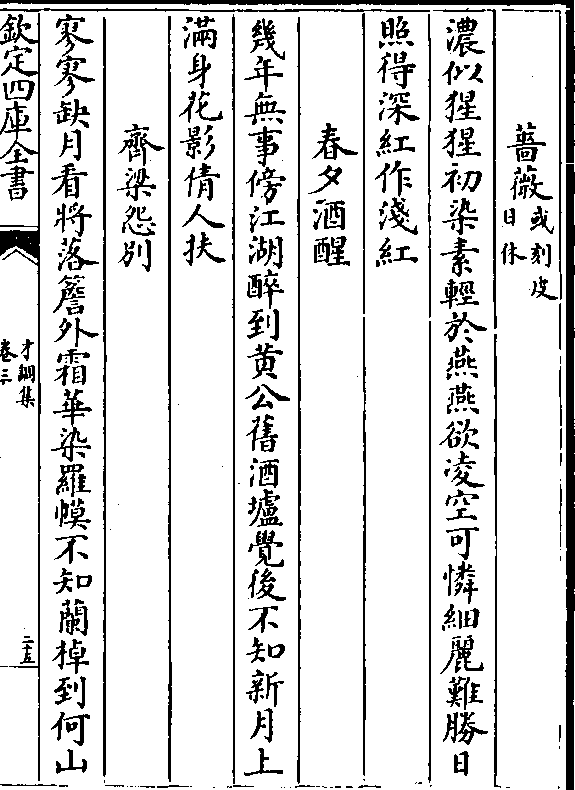 薔薇或刻皮日休
濃似猩猩初染素輕於燕燕欲凌空可憐細麗難勝日
照得深紅作淺紅
春夕酒醒
幾年無事傍江湖醉到黄公舊酒壚覺後不知新月上
滿身花影倩人扶
齊梁怨别
寥寥缺月看將落簷外霜華染羅幙不知蘭棹到何山
欽定四庫全書
才調集
卷三
二十五